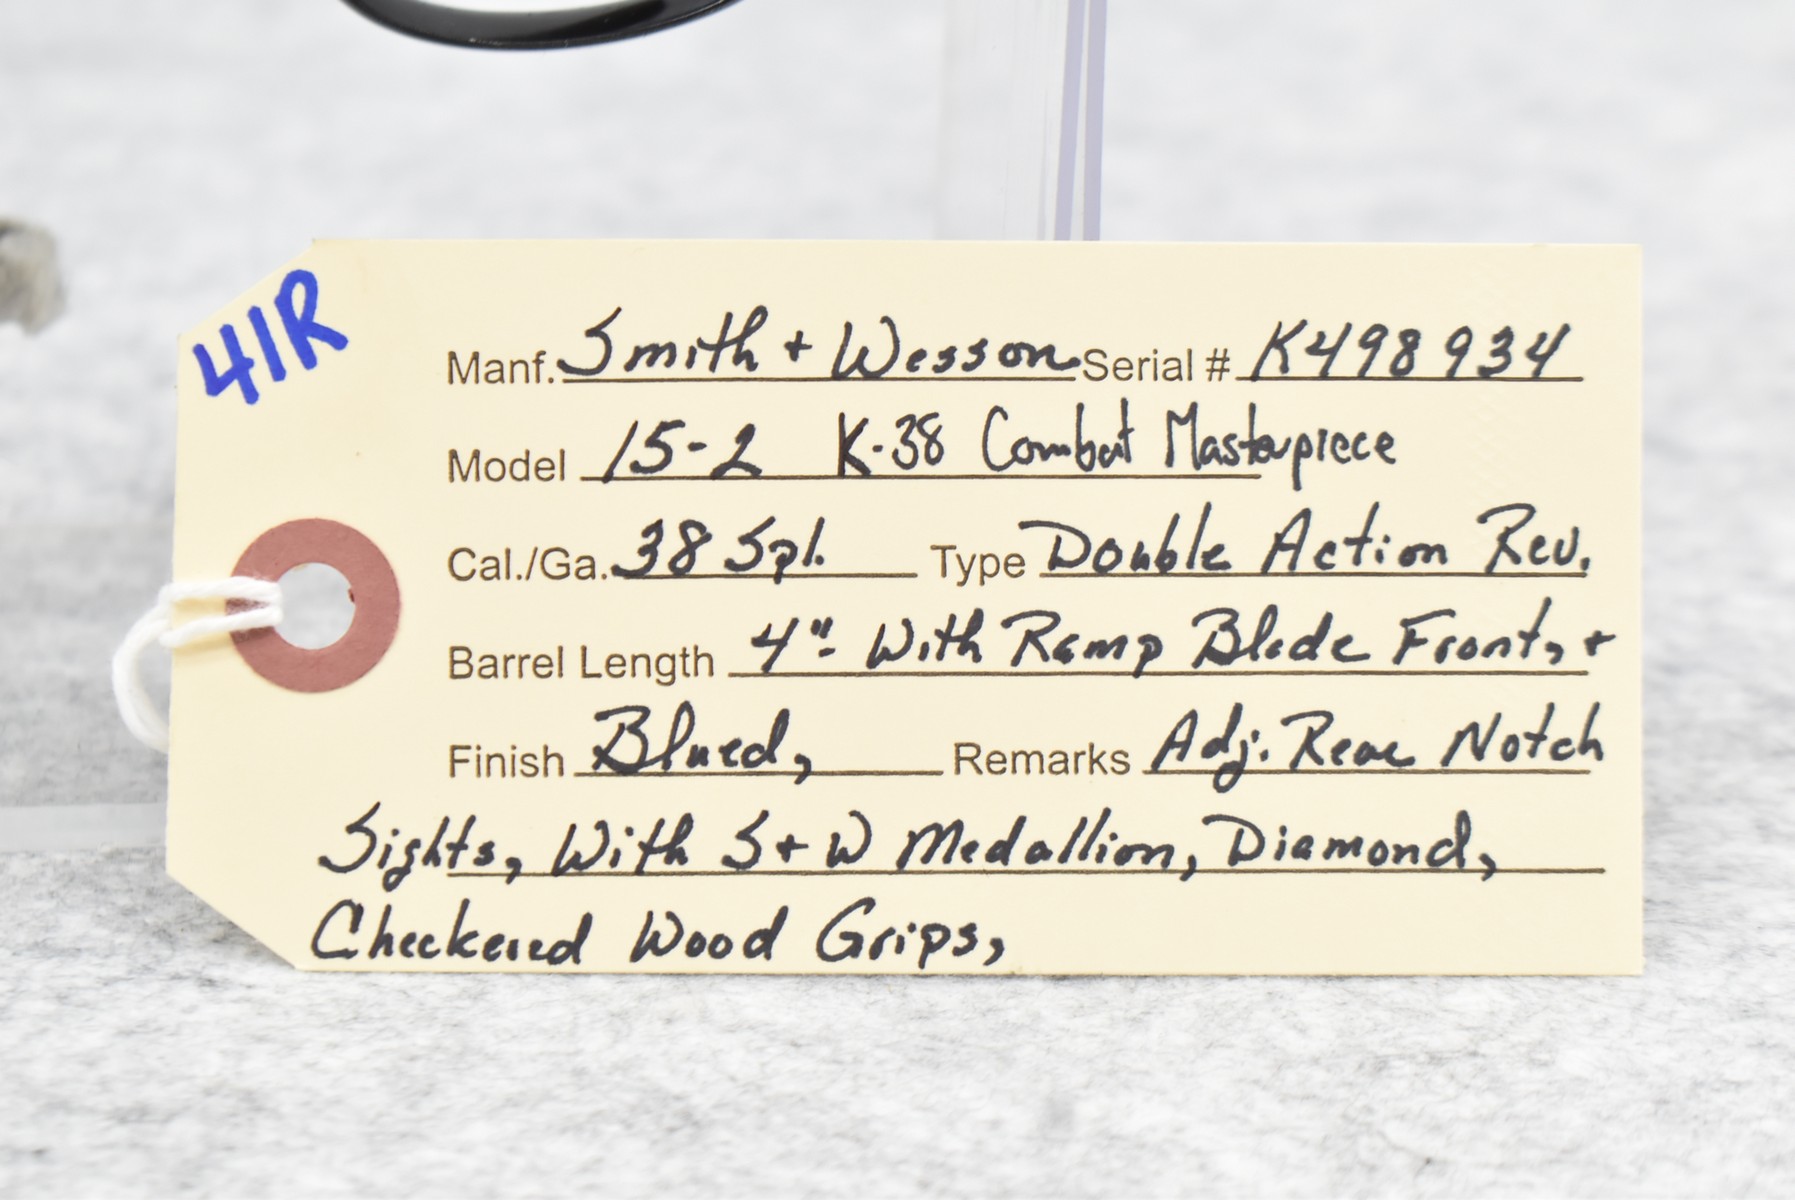 41R
Manf. Smith + Wesson Serial # K498934
Model 15-2 K-38 Combat Masterpiece
Cal./Ga. 38 Spl. Type Double Action Rev.
Barrel Length 4" With Ramp Blade Front, +
Finish Blued, Remarks Adj. Rear Notch
Sights, With S+W Medallion, Diamond,
Checkered Wood Grips,